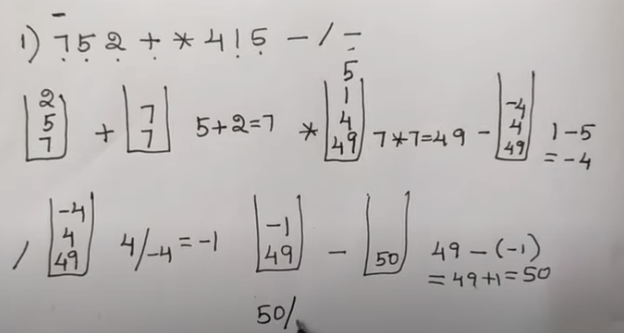 1) 7 5 2 + * 4 1 5 - / -
2 5 7 + 7 7 5+2=7 * 5 1 4 49 7*7=49 - -4 4 49 1-5 = -4
/ -4 4 49 4/-4 = -1 -1 49 - 50 49-(-1) = 49+1=50
50/